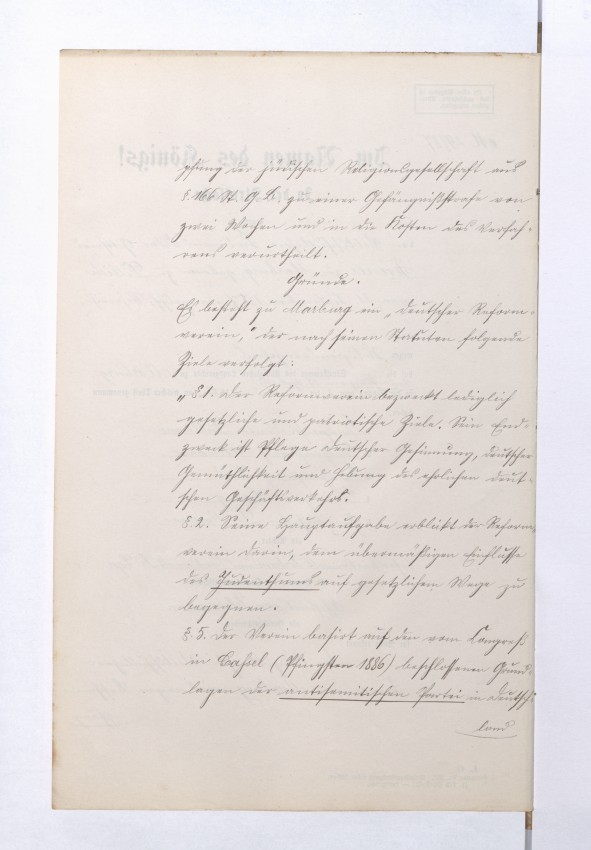 pfung der jüdischen Religionsgesellschaft aus
§ 166 St. G. B. zu einer Gefängnißstrafe von
zwei Wochen und in die Kosten des Verfah-
rens verurtheilt.
Gründe.
Es besteht zu Marburg ein „deutscher Reform-
verein,“ der nach seinen Statuten folgende
Ziele verfolgt:
„§ 1. Der Reformverein bezweckt lediglich
gesetzliche und patriotische Ziele. Sein End-
zweck ist Pflege deutscher Gesinnung, deutscher
Gemüthlichkeit und Hebung des ehrlichen deut-
schen Geschäftsverkehrs.
§. 2. Seine Hauptaufgabe erblickt der Reform-
verein darin, dem übermäßigen Einflusse
des Judenthums auf gesetzlichem Wege zu
begegnen.
§. 5. Der Verein basirt auf den vom Congreß
in Cassel (Pfingsten 1886) beschlossenen Grund-
lagen der antisemitischen Partei in Deutsch-
land